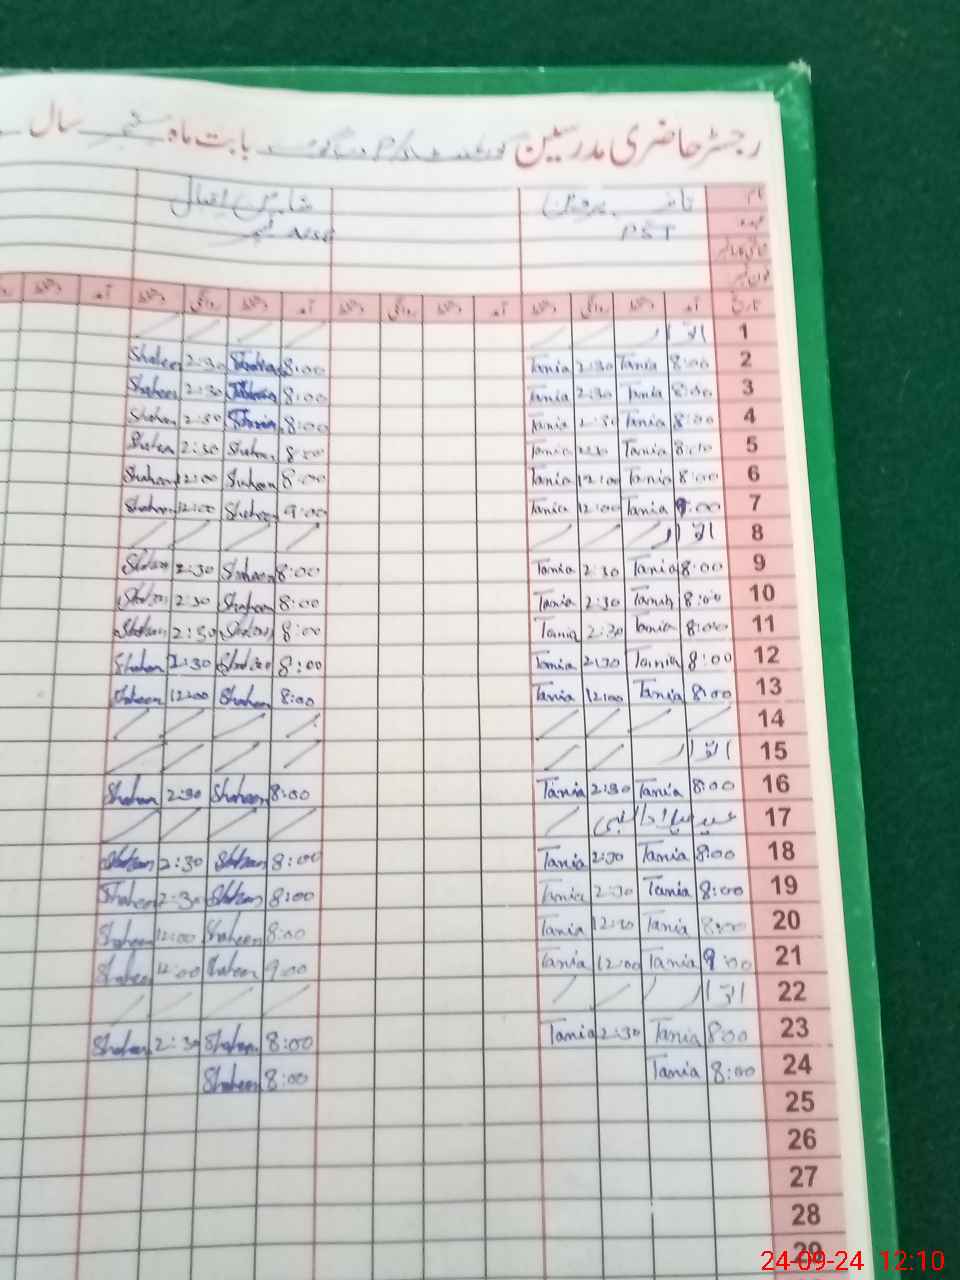 رجسٹر حاضری مدرسین گورنمنٹ بابت ماہ ستمبر سال
نام تانیہ پروین شاہین اقبال
عہدہ PST
شناختی کارڈ نمبر
فون نمبر
تاریخ آمد دستخط روانگی دستخط آمد دستخط روانگی دستخط آمد دستخط روانگی دستخط آمد دستخط
1 اتوار
2 8:00 Tania 2:30 Tania 8:00 Shaheen 2:30 Shaheen
3 8:00 Tania 2:30 Tania 8:00 Shaheen 2:30 Shaheen
4 8:00 Tania 2:30 Tania 8:00 Shaheen 2:30 Shaheen
5 8:00 Tania 2:30 Tania 8:00 Shaheen 2:30 Shaheen
6 8:00 Tania 12:00 Tania 8:00 Shaheen 12:00 Shaheen
7 9:00 Tania 12:00 Tania 9:00 Shaheen 12:00 Shaheen
8 اتوار
9 8:00 Tania 2:30 Tania 8:00 Shaheen 2:30 Shaheen
10 8:00 Tania 2:30 Tania 8:00 Shaheen 2:30 Shaheen
11 8:00 Tania 2:30 Tania 8:00 Shaheen 2:30 Shaheen
12 8:00 Tania 2:30 Tania 8:00 Shaheen 2:30 Shaheen
13 8:00 Tania 12:00 Tania 8:00 Shaheen 12:00 Shaheen
14
15 اتوار
16 8:00 Tania 2:30 Tania 8:00 Shaheen 2:30 Shaheen
17 عید میلاد النبی
18 8:00 Tania 2:30 Tania 8:00 Shaheen 2:30 Shaheen
19 8:00 Tania 2:30 Tania 8:00 Shaheen 2:30 Shaheen
20 8:00 Tania Tania 8:00 Shaheen 12:00 Shaheen
21 9:00 Tania 12:00 Tania 9:00 Shaheen 12:00 Shaheen
22 اتوار
23 8:00 Tania 2:30 Tania 8:00 Shaheen 2:30 Shaheen
24 8:00 Tania 8:00 Shaheen
25
26
27
28
29
24-09-24 12:10